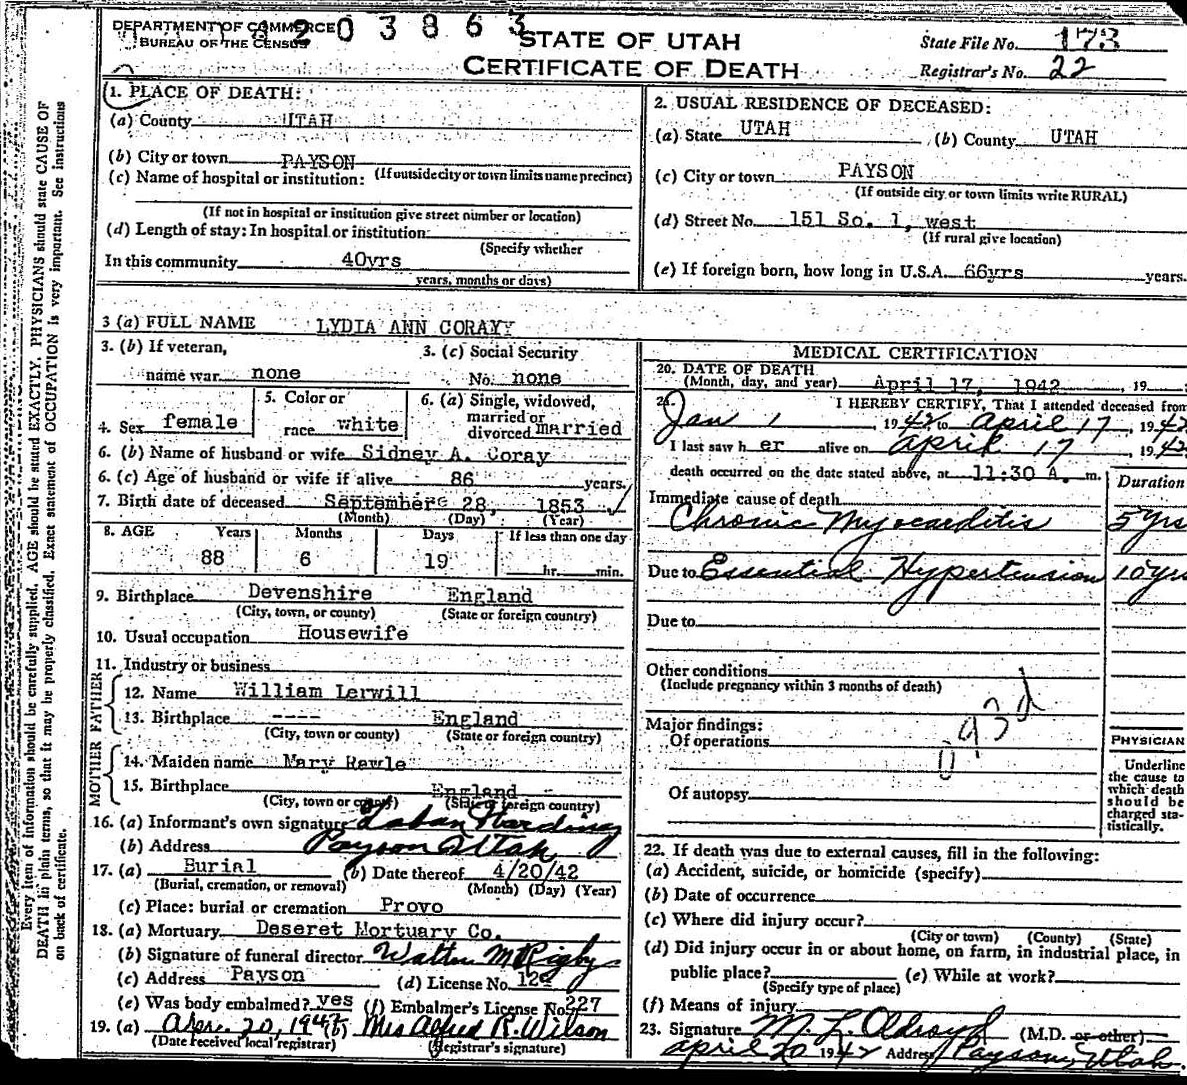 DEPARTMENT OF COMMERCE
BUREAU OF THE CENSUS
203863
STATE OF UTAH
CERTIFICATE OF DEATH
State File No. 173
Registrar's No. 22
Every item of information should be carefully supplied. AGE should be stated EXACTLY. PHYSICIANS should state CAUSE OF
DEATH in plain terms, so that it may be properly classified. Exact statement of OCCUPATION is very important. See instructions
on back of certificate.
1. PLACE OF DEATH:
(a) County UTAH
(b) City or town PAYSON
(If outside city or town limits name precinct)
(c) Name of hospital or institution:
(If not in hospital or institution give street number or location)
(d) Length of stay: In hospital or institution
(Specify whether
In this community 40yrs
years, months or days)
2. USUAL RESIDENCE OF DECEASED:
(a) State UTAH (b) County UTAH
(c) City or town PAYSON
(If outside city or town limits write RURAL)
(d) Street No. 151 So. 1, west
(If rural give location)
(e) If foreign born, how long in U.S.A. 66yrs years.
3 (a) FULL NAME LYDIA ANN CORAY
3. (b) If veteran,
name war none
3. (c) Social Security
No. none
4. Sex female
5. Color or
race white
6. (a) Single, widowed,
married or
divorced married
6. (b) Name of husband or wife Sidney A. Coray
6. (c) Age of husband or wife if alive 86 years.
7. Birth date of deceased September 28, 1853
(Month) (Day) (Year)
8. AGE Years Months Days If less than one day
88 6 19 hr. min.
9. Birthplace Devenshire England
(City, town, or county) (State or foreign country)
10. Usual occupation Housewife
11. Industry or business
FATHER
12. Name William Lerwill
13. Birthplace ---- England
(City, town or county) (State or foreign country)
MOTHER
14. Maiden name Mary Rawle
15. Birthplace England
(City, town or county) (State or foreign country)
16. (a) Informant's own signature Laban Harding
(b) Address Payson Utah
17. (a) Burial (b) Date thereof 4/20/42
(Burial, cremation, or removal) (Month) (Day) (Year)
(c) Place: burial or cremation Provo
18. (a) Mortuary Deseret Mortuary Co.
(b) Signature of funeral director Walter M Rigby
(c) Address Payson (d) License No.
(e) Was body embalmed? yes (f) Embalmer's License No. 227
19. (a) Apr. 20, 1942 (b) Mrs Alfred R. Wilson
(Date received local registrar) (Registrar's signature)
MEDICAL CERTIFICATION
20. DATE OF DEATH
(Month, day, and year) April 17, 1942, 19
21. I HEREBY CERTIFY, That I attended deceased from
Jan 1 1942 to April 17, 1942
I last saw h er alive on April 17, 1942
death occurred on the date stated above, at 11:30 A. m.
Duration
Immediate cause of death
Chronic Myocarditis 5 yrs
Due to Essential Hypertension 10 yrs
Due to
Other conditions
(Include pregnancy within 3 months of death)
Major findings:
Of operations
93d
Of autopsy
PHYSICIAN
Underline
the cause to
which death
should be
charged sta-
tistically.
22. If death was due to external causes, fill in the following:
(a) Accident, suicide, or homicide (specify)
(b) Date of occurrence
(c) Where did injury occur?
(City or town) (County) (State)
(d) Did injury occur in or about home, on farm, in industrial place, in
public place? (e) While at work?
(Specify type of place)
(f) Means of injury
23. Signature M. L. Oldroyd (M.D. or other)
April 20 1942 Address Payson, Utah.